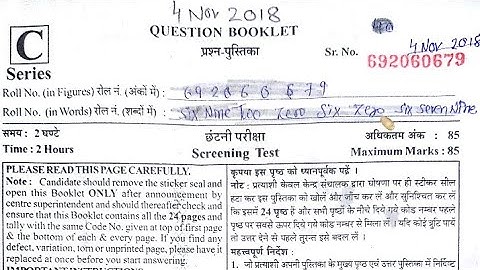 4 Nov 2018
QUESTION BOOKLET
C
Series
प्रश्न-पुस्तिका
Sr. No.
4 Nov 2018
692060679
Roll No. (in Figures) रोल नं. (अंकों में) : 692060679
Roll No. (in Words) रोल नं. (शब्दों में) : Six Nine Too Zero Six Zero Six Seven Nine
समय : 2 घण्टे
छंटनी परीक्षा
अधिकतम अंक : 85
Time : 2 Hours
Screening Test
Maximum Marks : 85
PLEASE READ THIS PAGE CAREFULLY.
Note : Candidate should remove the sticker seal and
open this Booklet ONLY after announcement by
centre superintendent and should thereafter check and
ensure that this Booklet contains all the 24 pages and
tally with the same Code No. given at top of first page
& the bottom of each & every page. If you find any
defect, variation, torn or unprinted page, please have it
replaced at once before you start answering.
कृपया इस पृष्ठ को ध्यानपूर्वक पढ़ें ।
नोट : प्रत्याशी केवल केन्द्र संचालक द्वारा घोषणा पर ही स्टीकर सील
हटा कर इस पुस्तिका को खोलें और जाँच कर लें और सुनिश्चित कर लें
कि इसमें 24 पृष्ठ हैं और सभी पृष्ठों के नीचे दिये गये कोड नम्बर पहले
पृष्ठ पर सबसे ऊपर दिये गये कोड नम्बर से मिलता है । यदि कोई त्रुटि पायें
तो उत्तर देने से पहले तुरन्त इसे बदल लें ।
महत्त्वपूर्ण निर्देश :